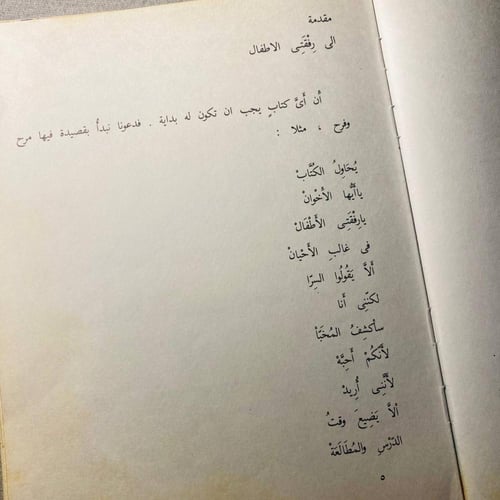 مقدمة
الى رِفْقَتِى الاطفال
أن أَىَّ كتابٍ يجب ان تكون له بداية . فدعونا نبدأُ بقصيدة فيها مرح
وفرح ، مثلا :
يُحَاوِلُ الكُتَّابْ
ياأَيُّها الأُخْوانْ
يارِفْقَتِى الأَطْفَالْ
فى غالبِ الأَحْيانْ
أَلاَّ يَقُولُوا السِرّا
لكنّنِى أَنا
سأَكشِفُ المُخَبّأ
لأَنكُمْ أَحِبَّهْ
لأَنَّنِى أُرِيدْ
ألاَّ يَضِيعَ وقتُ
الدّرْسِ والمُطَالَعَهْ
٥